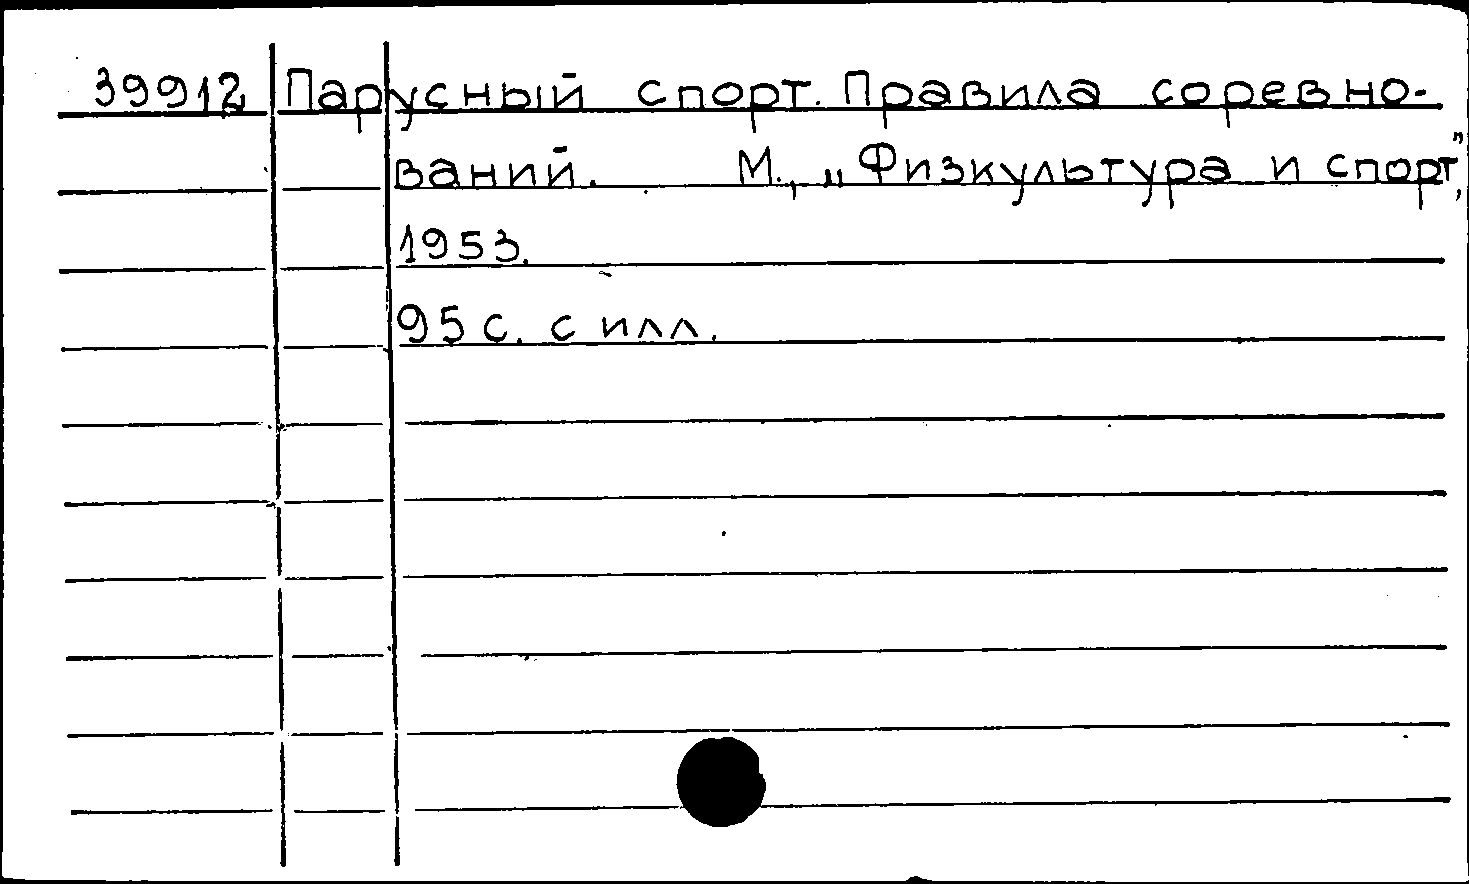 39912 Парусный спорт. Правила соревно-
ваний. М., „Физкультура и спорт”,
1953.
95 с. с илл.